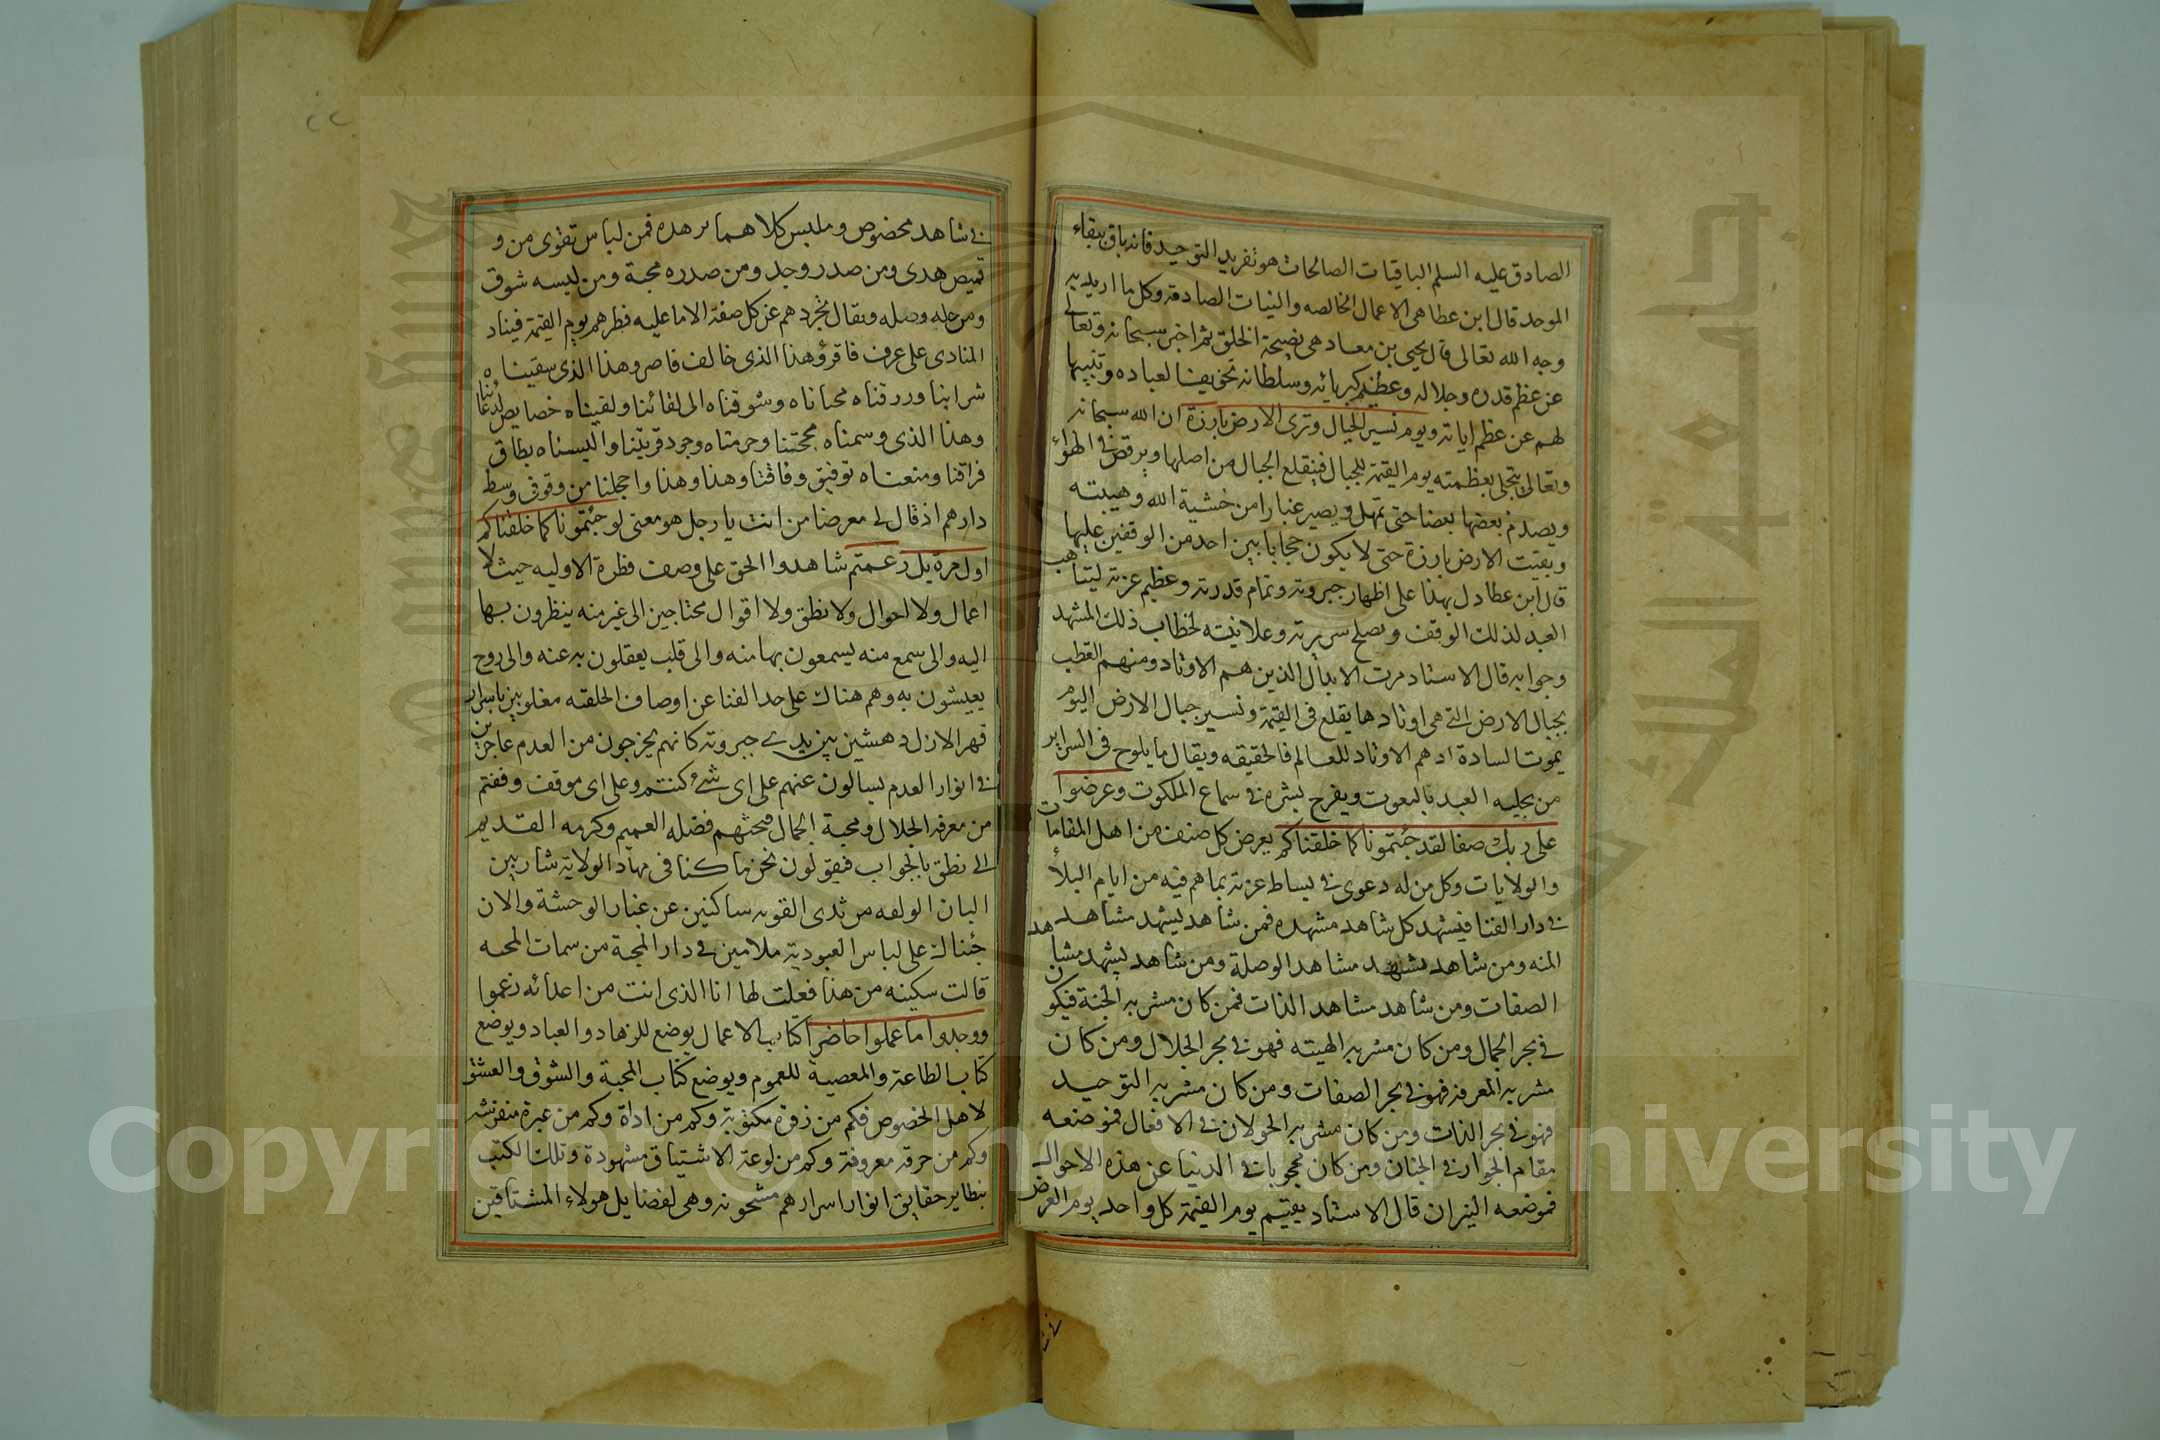 الصادق عليه السلم الباقيات الصالحات هو تفريد التوحيد فانه باق ببقاء
الموحد قال ابن عطا هى الاعمال الخالصه والنيات الصادقه وكل ما اريد به
وجه الله تعالى قال يحيى بن معاد هى نصيحة الخلق ثم اخبر سبحانه وتعالى
عن عظم قدره وجلاله وعظيم كبريائه وسلطانه تخويفا لعباده وتنبيها
لهم عن عظم اياته ويوم نسير الجبال وترى الارض بارزة ان الله سبحانه
وتعالى يتجلى بعظمته يوم القيمة للجبال فينقلع الجبال من اصلها ويرقص فى الهواء
ويصدم بعضها بعضا حتى تمهل ويصير غبارا من خشية الله وهيبته
وبقيت الارض بارزة حتى لا يكون حجابا بين احد من الوقفين عليها
قال ابن عطا دل بهذا على اظهار جبروته وتمام قدرته وعظيم عزته ليتاهب
العبد لذلك الوقف ويصلح سريرته وعلانيته لخطاب ذلك المشهد
وجوابه قال الاستاد مرت الابدال الذين هم الاوتاد ومنهم القطب
بجبال الارض التى هى اوتادها يقلع فى القيمة ونسير جبال الارض اليوم
يموت السادة اد هم الاوتاد للعالم فالحقيقه ويقال ما يلوح فى السراير
من العبد بالنعوت ويفرح بشره فى سماع الملكوت وعرضوا
على ربك صفا لقد جئتمونا كما خلقناكم يعرض كل صنف من اهل المقامات
والولايات وكل من له دعوى فى بساط عزته بما هم فيه من ايام البلاء
فى دار الفنا فيشهد كل شاهد مشهده فمن شاهد ليشهد مشاهد
المنه ومن شاهد يشهد مشاهد الوصلة ومن شاهد يشهد مشاهد
الصفات ومن شاهد مشاهد الذات فمن كان مشربه الجنة فيكون
فى بحر الجمال ومن كان مشربه الهيبته فهو فى بحر الجلال ومن كان
مشربه المعرفة فهو فى بحر الصفات ومن كان مشربه التوحيد
فهو فى بحر الذات ومن كان مشربه الجولان فى الافعال فموضعه
مقام الجوار فى الجنان ومن كان محجوبا فى الدنيا عن هذه الاحوال
فموضعه النيران قال الاستاد يقيم يوم القيمة كل واحد يوم العرض
فى شاهد مخصوص وملبس كلا هما هذه فمن لباس تقوى من و
قميص هدى ومن صدر وجد ومن صدره محبة ومن لبسه شوق
ومن حله وصله ويقال يجردهم عن كل صفة الا ما عليه فطرهم يوم القيمة فيناد
المنادى على عرف فاقرؤ هذا الذى خالف قاصر وهذا الذى سقيناه
شرابنا ورزقناه محاناه وشوقناه الى لقائنا ولقيناه خصايص
وهذا الذى وسمناه بحجتنا وحرمناه وجود قربتنا والبسناه نطاق
فراقنا ومنعناه توفيق وفاقنا وهذا وهذا واجلنا من وقوفى وسط
دارهم اذ قال لى معرضا من انت يا رجل هو معنى لو جئتمونا كما خلقناكم
اول مرة بل زعمتم شاهدوا الحق على وصف فطرة الاوليه حيث لا
اعمال ولا احوال ولا نطق ولا اقوال محتاجين الى غير منه ينظرون بها
اليه والى سمع منه يسمعون بها منه والى قلب يعقلون به عنه والى روح
يعيشون به وهم هناك على حد الفنا عن اوصاف الخلقته مغلوبين باسرار
قهر الازل دهشين بين يدى جبروته كانهم يخرجون من العدم عاجزين
فى انوار العدم يسالون عنهم على اى شئ كنتم وعلى اى موقف وقفتم
من معرفة الجلال ومحبة الجمال فحثهم فضله العميم وكرمه القديم
الى نطق بالجواب فيقولون نحن ما كنا فى مهاد الولاية شاربين
البان الولفه من ثدى القوبه ساكنين عن غبار الوحشة والان
جئناك على لباس العبودية ملامين فى دار المحبة من سمات المحبه
قالت سكينه من هذا فعلت لها انا الذى انت من اعدائه زعموا
ووجدوا ما عملوا حاضرا كتاب الاعمال يوضع للزهاد والعباد ويوضع
كتاب الطاعة والمعصية للعموم ويوضع كتاب المحبة والشوق والعشق
لاهل الخصوص فكم من زفرة مكتوبة وكم من اداة وكم من عبرة
وكم من حرقة معروفة وكم من لوعة الاشتياق مشهودة وتلك الكتب
حقايق انوار اسرارهم مشحونه وهى لفضايل هولاء المشتاقين
Copyright © King Saud University
جامعة الملك سعود